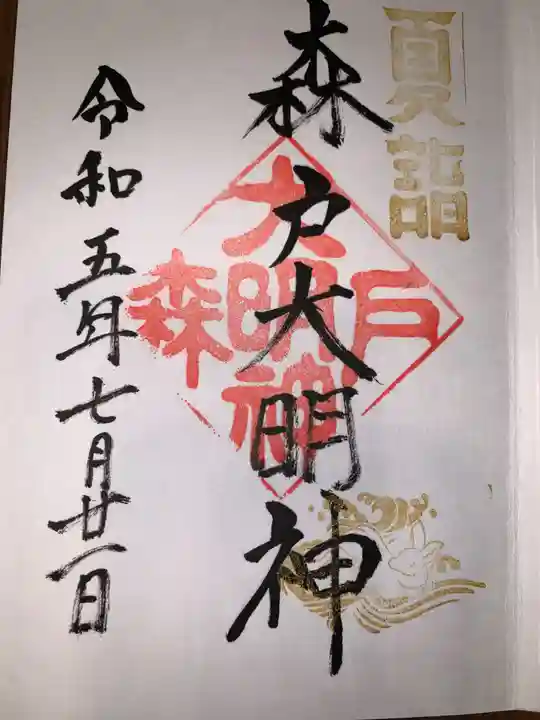 夏詣
森戸大明神
森戸
大明神
令和五年七月廿一日